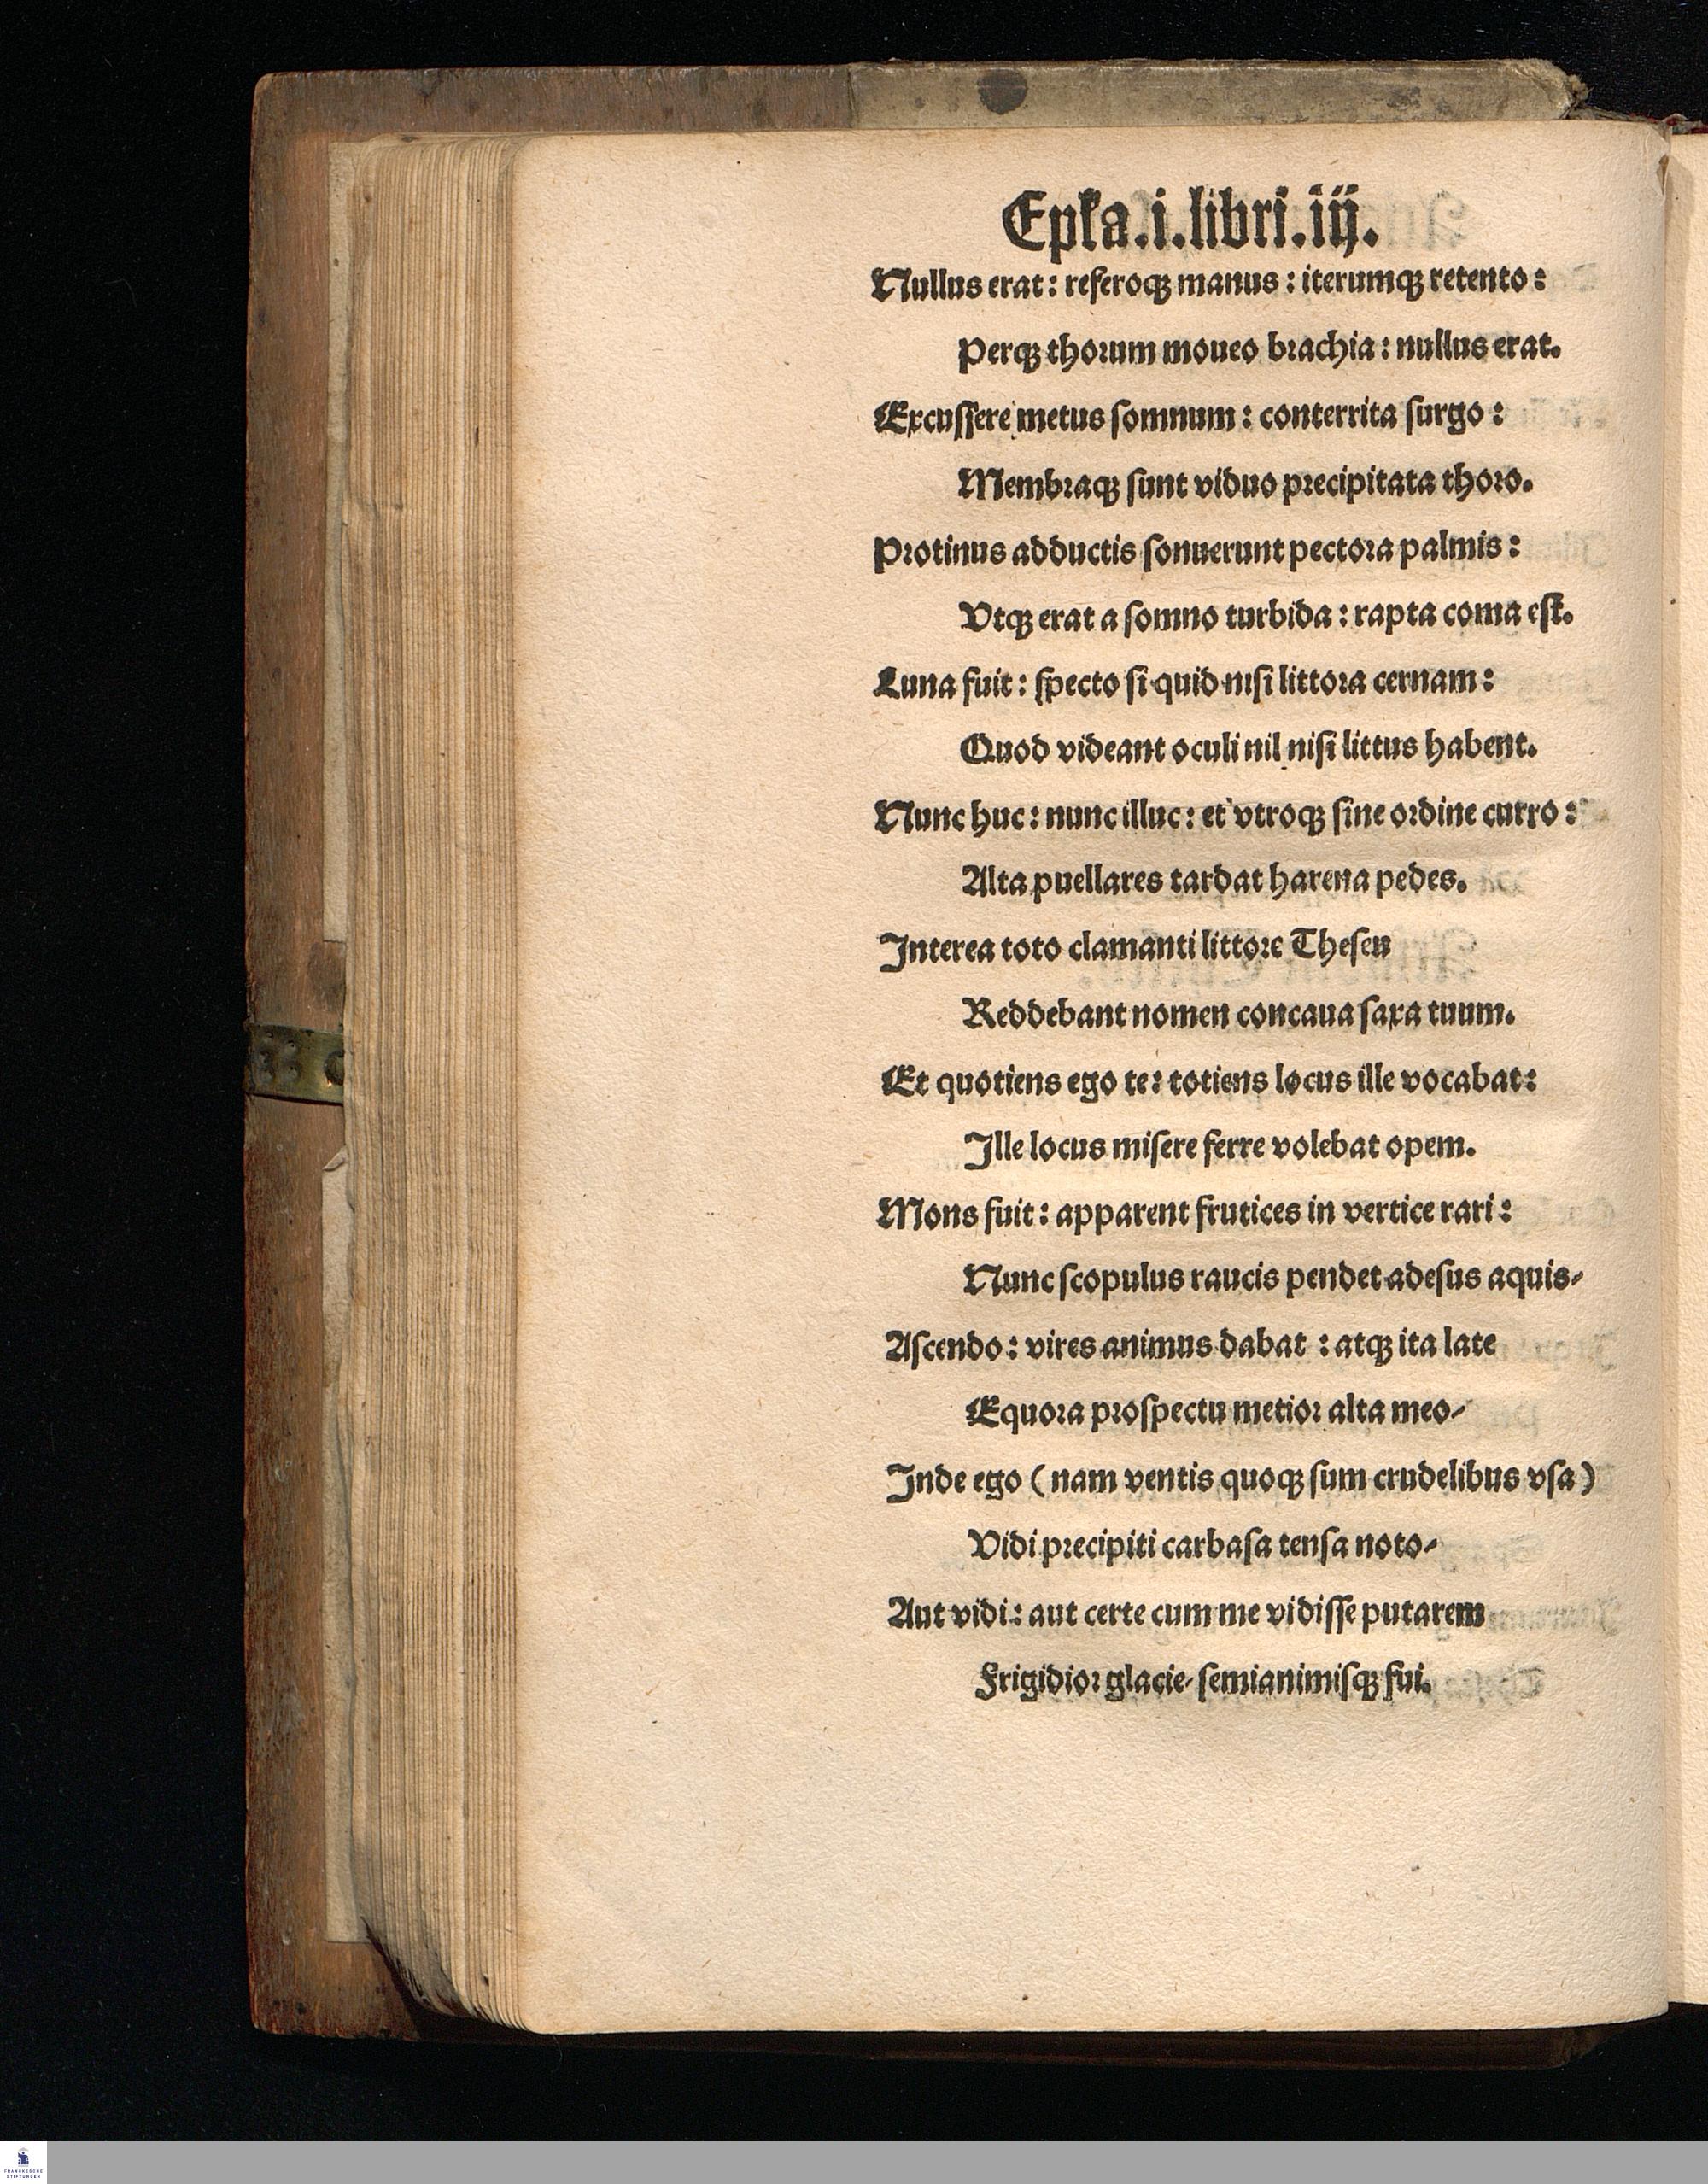 Epła.i.libri.iij.
Nullus erat: referoqꝫ manus: iterumqꝫ retento:
Perqꝫ thorum moueo brachia: nullus erat.
Excuſſere metus ſomnum: conterrita ſurgo:
Membraqꝫ ſunt viduo precipitata thoro.
Protinus adductis ſonuerunt pectora palmis:
Vtqꝫ erat a ſomno turbida: rapta coma eſt.
Luna fuit: ſpecto ſi quid niſi littora cernam:
Quod videant oculi nil niſi littus habent.
Nunc huc: nunc illuc: et vtroqꝫ ſine ordine curro:
Alta puellares tardat harena pedes.
Interea toto clamanti littore Theſeu
Reddebant nomen concaua ſaxa tuum.
Et quotiens ego te: totiens locus ille vocabat:
Ille locus miſere ferre volebat opem.
Mons fuit: apparent frutices in vertice rari:
Nunc ſcopulus raucis pendet adeſus aquis⸗
Aſcendo: vires animus dabat: atqꝫ ita late
Equora proſpectu metior alta meo⸗
Inde ego (nam ventis quoqꝫ ſum crudelibus vſa)
Vidi precipiti carbaſa tenſa noto⸗
Aut vidi: aut certe cum me vidiſſe putarem
Frigidior glacie⸗ ſemianimiſqꝫ fui.
FRANCKESCHE
STIFTUNGEN